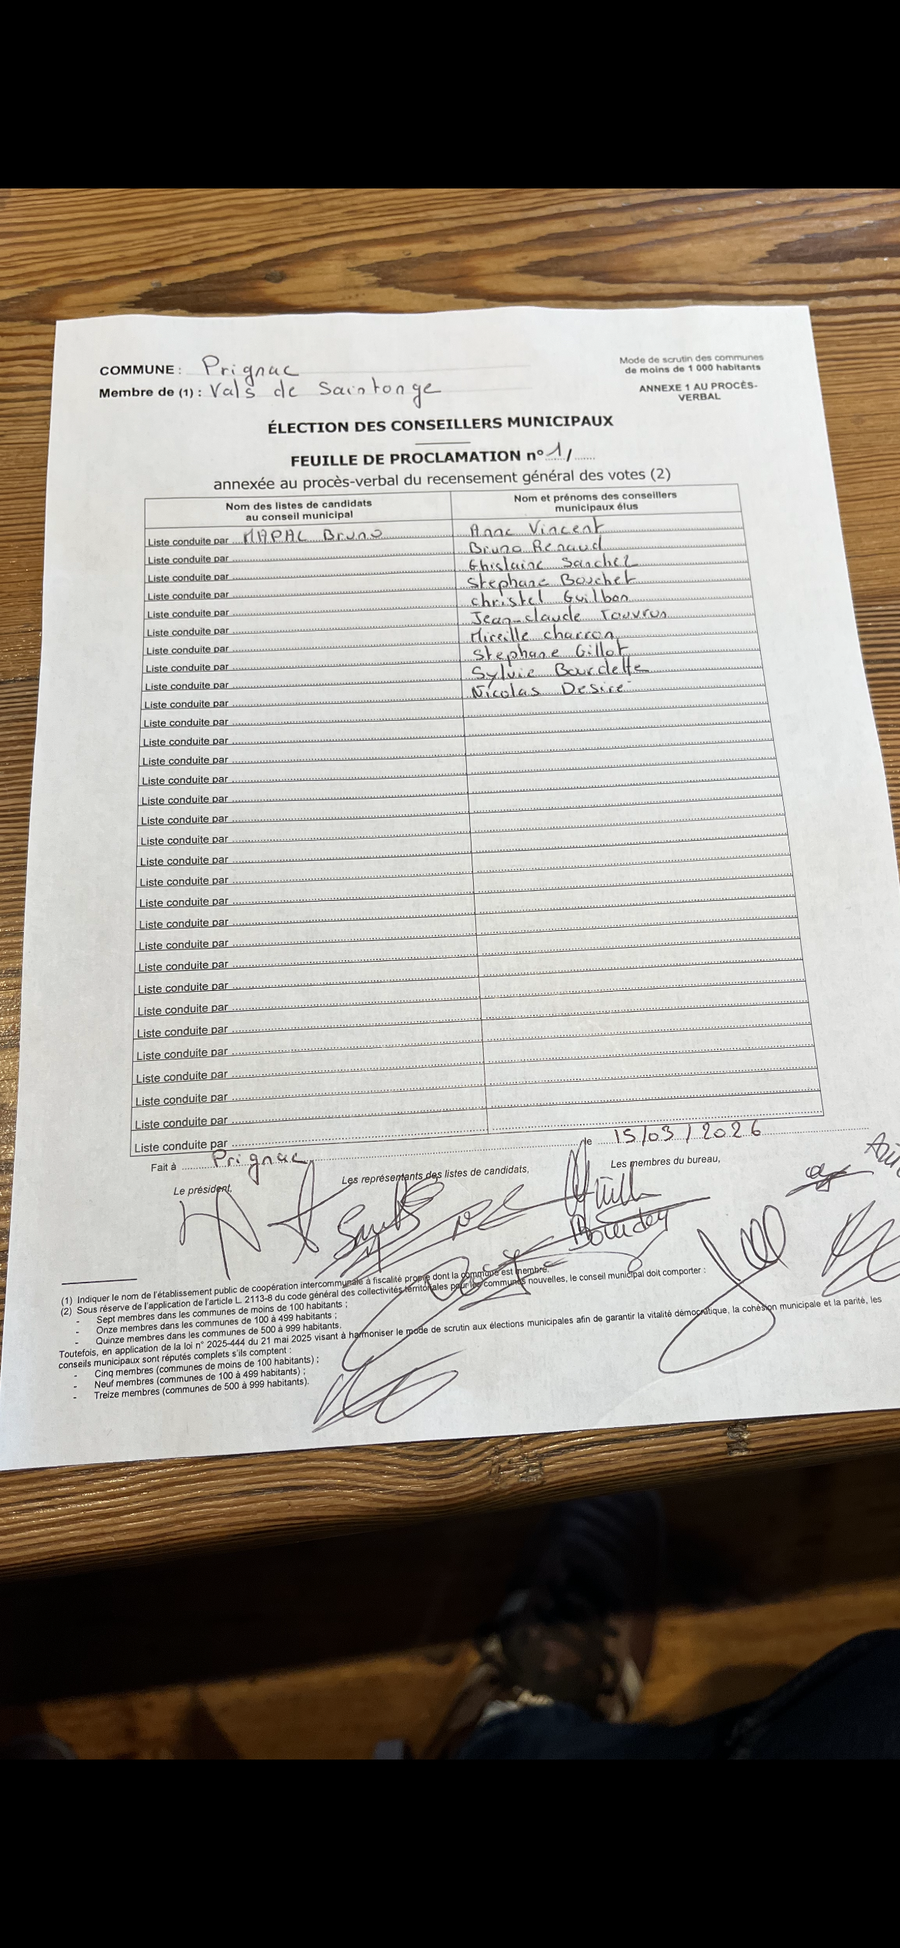 COMMUNE : Prignac
Membre de (1) : Vals de Saintonge
Mode de scrutin des communes
de moins de 1 000 habitants
ANNEXE 1 AU PROCÈS-
VERBAL
ÉLECTION DES CONSEILLERS MUNICIPAUX
FEUILLE DE PROCLAMATION n° 1/
annexée au procès-verbal du recensement général des votes (2)
Nom des listes de candidats
au conseil municipal
Nom et prénoms des conseillers
municipaux élus
Liste conduite par MAPAL Bruno
Anne Vincent
Liste conduite par
Bruno Renaud
Liste conduite par
Ghislaine Sanchez
Liste conduite par
Stephane Bouchet
Liste conduite par
Christel Guilbon
Liste conduite par
Jean-claude
Liste conduite par
Mireille charron
Liste conduite par
Stephane Gillot
Liste conduite par
Sylvie Bourdette
Liste conduite par
Nicolas Desiré
Liste conduite par
Liste conduite par
Liste conduite par
Liste conduite par
Liste conduite par
Liste conduite par
Liste conduite par
Liste conduite par
Liste conduite par
Liste conduite par
Liste conduite par
Liste conduite par
Liste conduite par
Liste conduite par
Liste conduite par
Liste conduite par
Liste conduite par
Liste conduite par
Liste conduite par
Liste conduite par
Liste conduite par
Fait à Prignac
le 15/03/2026
Le président,
Les représentants des listes de candidats,
Les membres du bureau,
(1) Indiquer le nom de l'établissement public de coopération intercommunale à fiscalité propre dont la commune est membre.
(2) Sous réserve de l'application de l'article L. 2113-8 du code général des collectivités territoriales pour les communes nouvelles, le conseil municipal doit comporter :
- Sept membres dans les communes de moins de 100 habitants ;
- Onze membres dans les communes de 100 à 499 habitants ;
- Quinze membres dans les communes de 500 à 999 habitants.
Toutefois, en application de la loi n° 2025-444 du 21 mai 2025 visant à harmoniser le mode de scrutin aux élections municipales afin de garantir la vitalité démocratique, la cohésion municipale et la parité, les
conseils municipaux sont réputés complets s'ils comptent :
- Cinq membres (communes de moins de 100 habitants) ;
- Neuf membres (communes de 100 à 499 habitants) ;
- Treize membres (communes de 500 à 999 habitants).